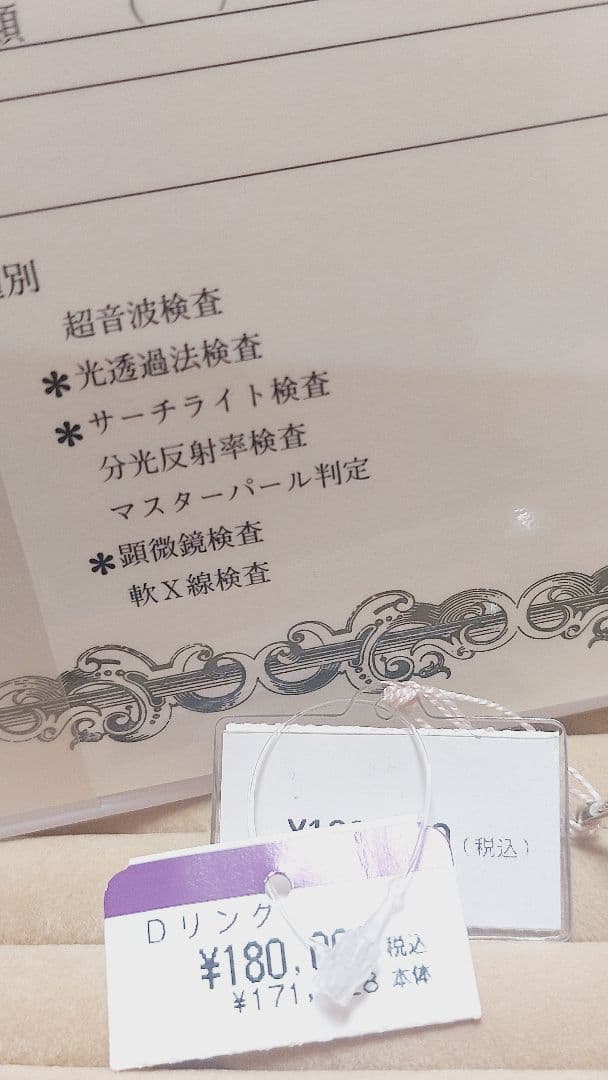 額 ( )
別
超音波検査
*光透過法検査
*サーチライト検査
分光反射率検査
マスターパール判定
*顕微鏡検査
軟X線検査
(税込)
Dリング
¥180, 税込
¥171, 8 本体